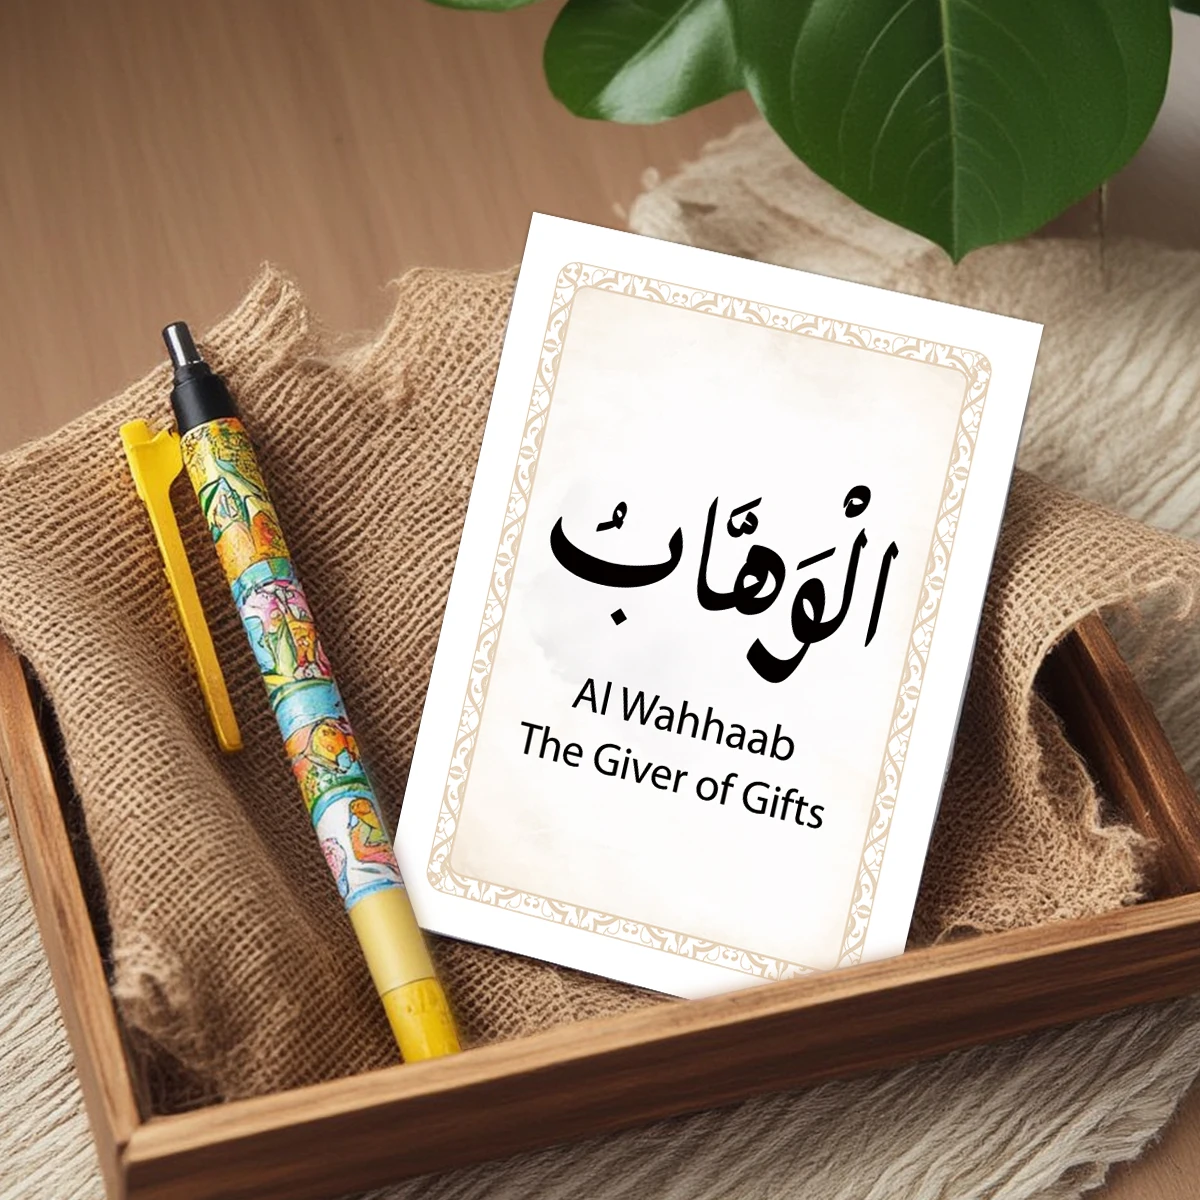 الْوَهَّابُ
Al Wahhaab
The Giver of Gifts